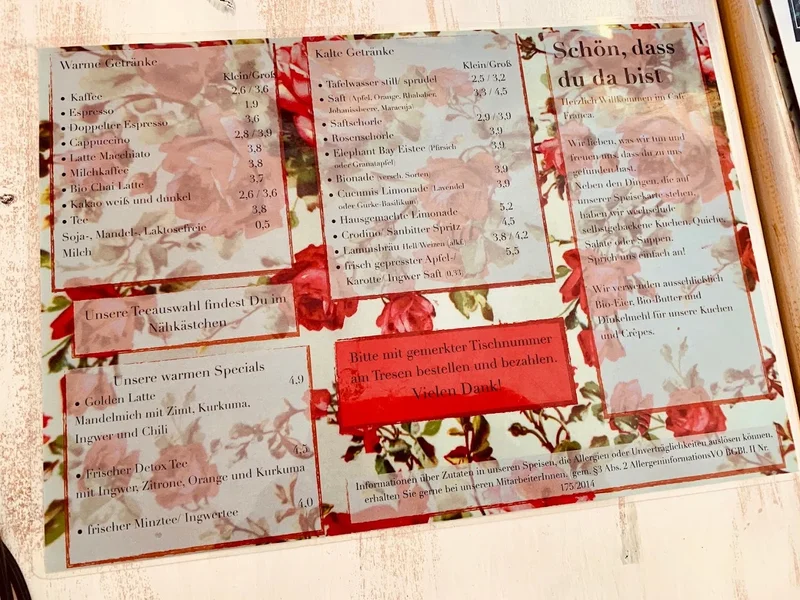 Warme Getränke
Klein/Groß
• Kaffee 2,6 / 3,6
• Espresso 1,9
• Doppelter Espresso 3,6
• Cappuccino 2,8 / 3,9
• Latte Macchiato 3,8
• Milchkaffee 3,8
• Bio Chai Latte 3,7
• Kakao weiß und dunkel 2,6 / 3,6
• Tee 3,8
Soja-, Mandel-, Laktosefreie 0,5
Milch
Unsere Teeauswahl findest Du im
Nähkästchen
Unsere warmen Specials
• Golden Latte 4,9
Mandelmich mit Zimt, Kurkuma,
Ingwer und Chili
• Frischer Detox Tee 4,5
mit Ingwer, Zitrone, Orange und Kurkuma
• frischer Minztee/ Ingwertee 4,0
Kalte Getränke
Klein/Groß
• Tafelwasser still/ sprudel 2,5 / 3,2
• Saft (Apfel, Orange, Rhabaher, 3,3 / 4,5
Johannisbeere, Maracuja)
• Saftschorle 2,9 / 3,9
• Rosenschorle 3,9
• Elephant Bay Eistee (Pfirsich 3,9
oder Granatapfel)
• Bionade (versch. Sorten) 3,9
• Cucumis Limonade (Lavendel 3,9
oder Gurke-Basilikum)
• Hausgemachte Limonade 5,2
• Crodino/ Sanbitter Spritz 4,5
• Lammsbräu Hell/Weizen (alkf.) 3,8 / 4,2
• frisch gepresster Apfel-/ 5,5
Karotte/ Ingwer Saft (0,33)
Bitte mit gemerkter Tischnummer
am Tresen bestellen und bezahlen.
Vielen Dank!
Schön, dass
du da bist
Herzlich Willkommen im Café
Franca.
Wir lieben, was wir tun und
freuen uns, dass du zu uns
gefunden hast.
Neben den Dingen, die auf
unserer Speisekarte stehen,
haben wir wechselnde
selbstgebackene Kuchen, Quiche,
Salate oder Suppen.
Sprich uns einfach an!
Wir verwenden ausschließlich
Bio-Eier, Bio-Butter und
Dinkelmehl für unsere Kuchen
und Crêpes.
Informationen über Zutaten in unseren Speisen, die Allergien oder Unverträglichkeiten auslösen können,
erhalten Sie gerne bei unseren MitarbeiterInnen, gem. §3 Abs. 2 AllergeninformationsVO BGBl. II Nr.
175/2014